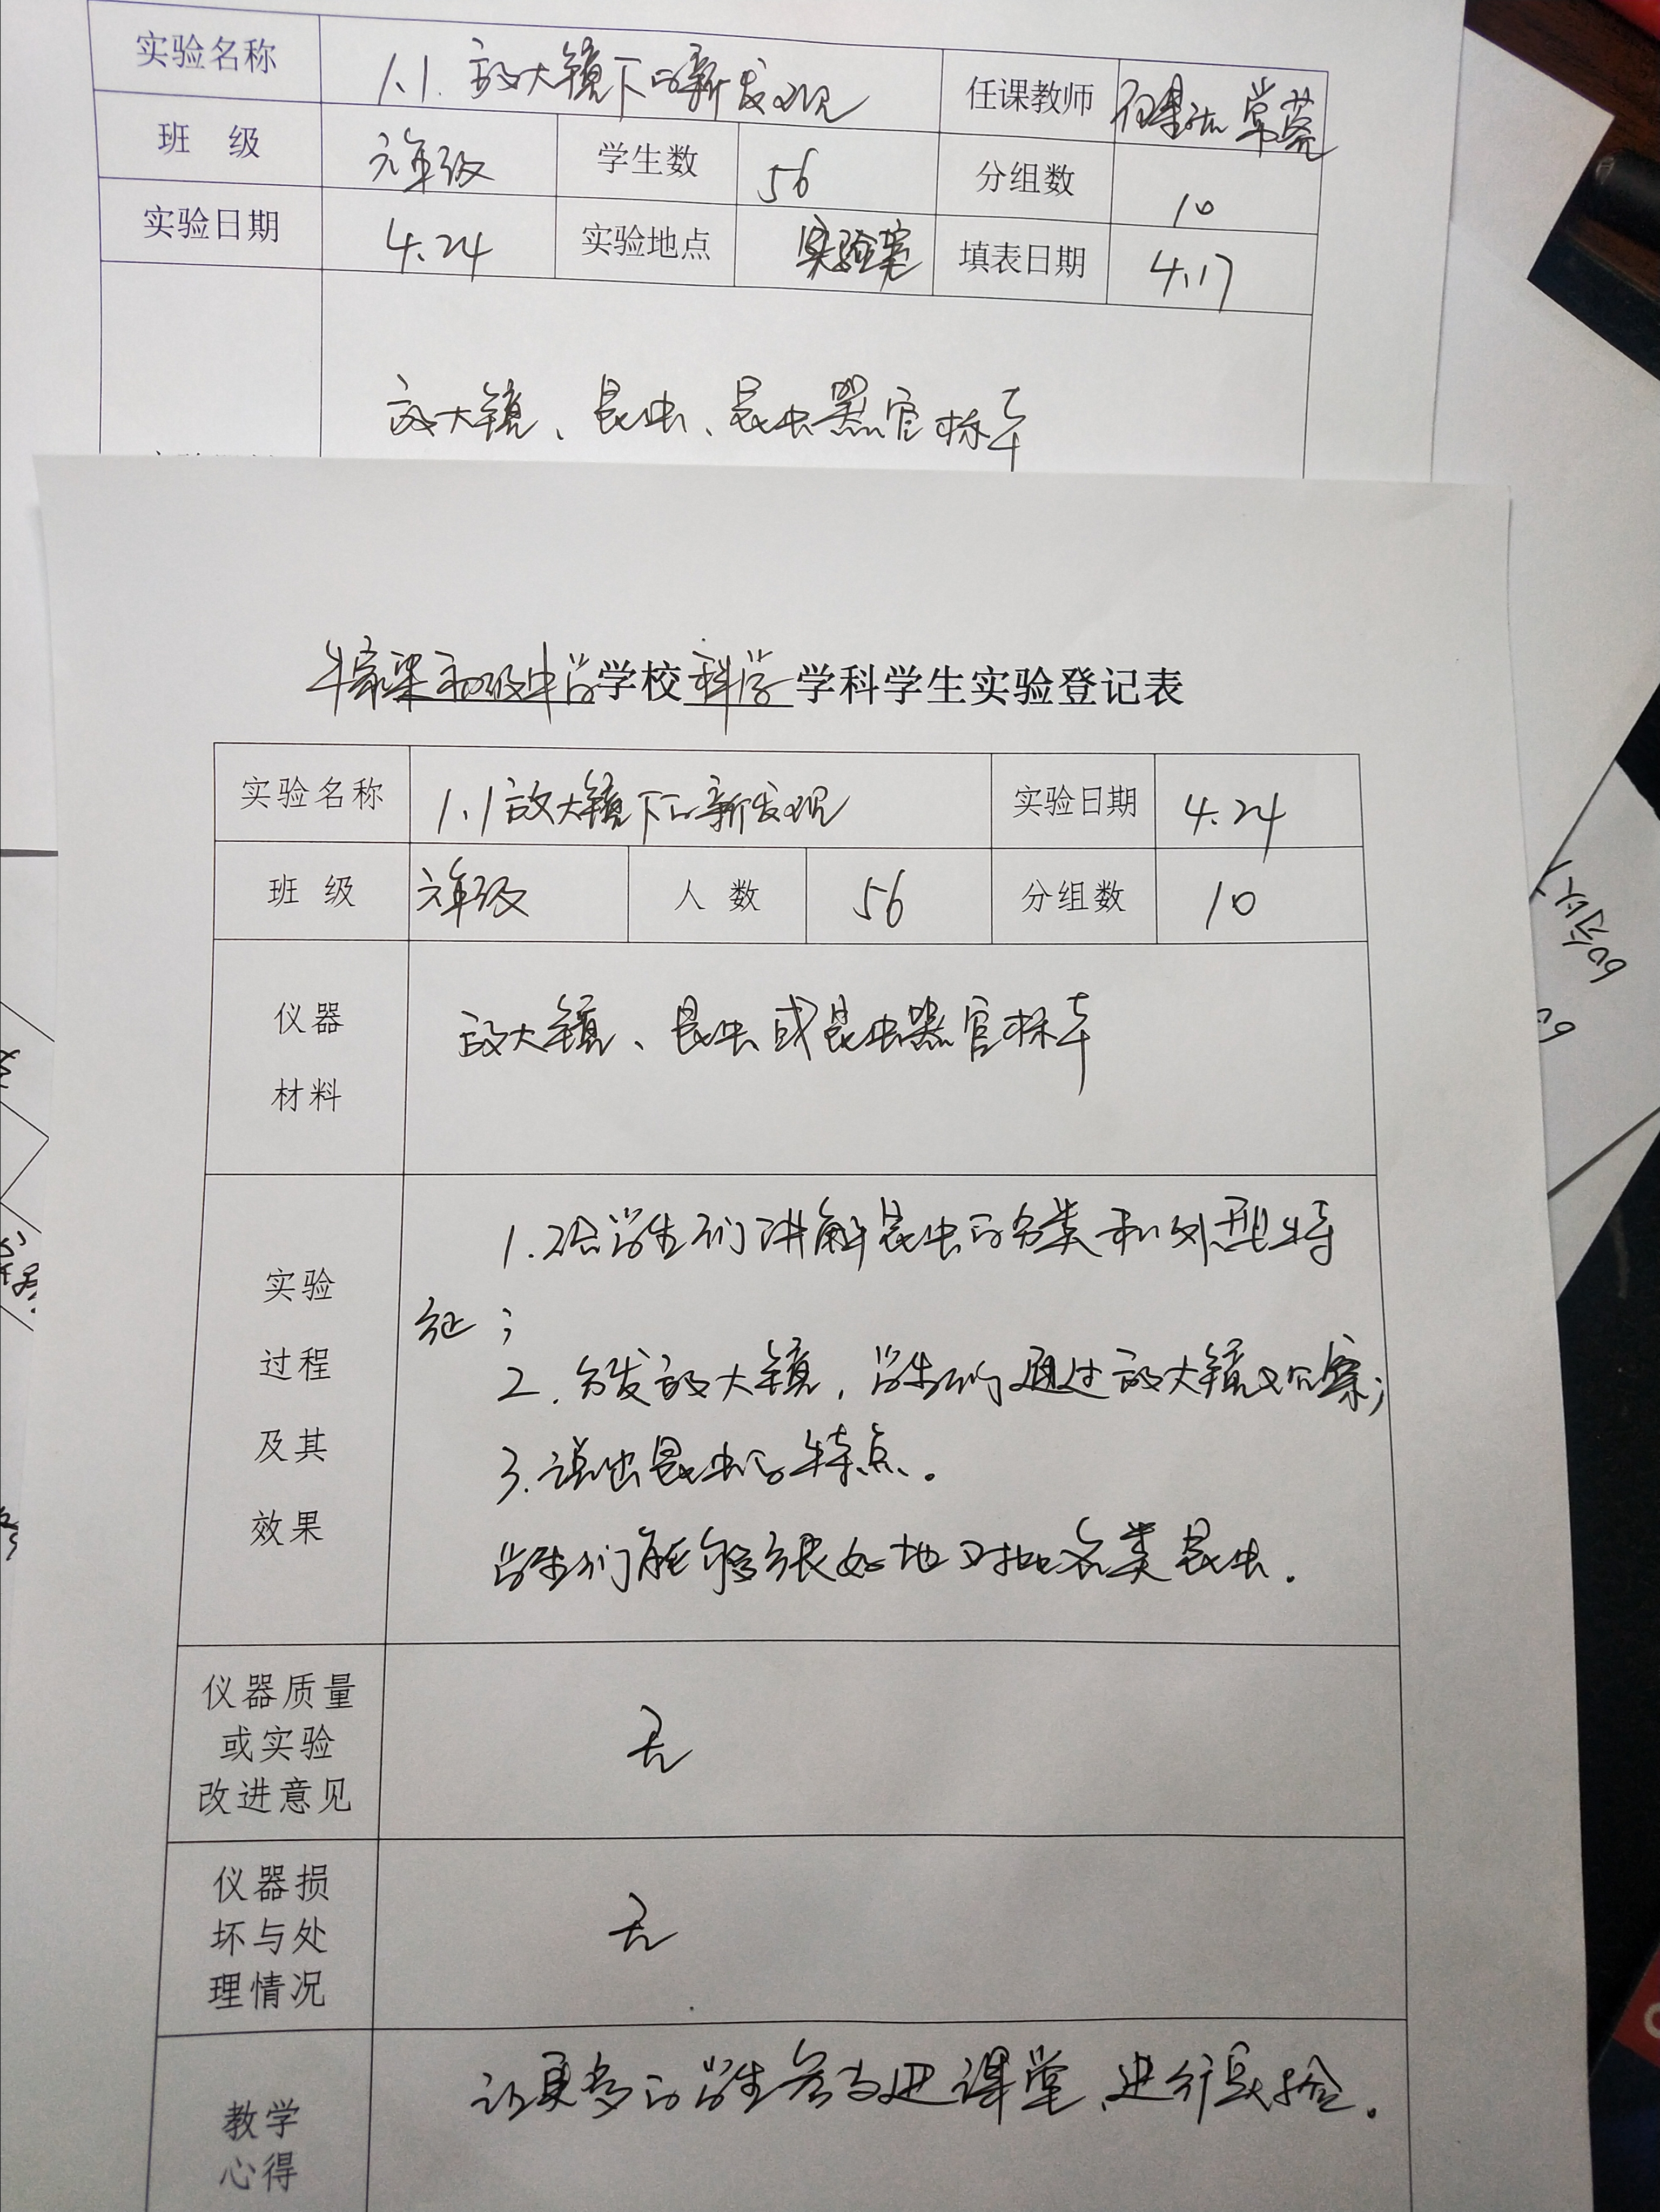 实验名称 1.1 放大镜下的新发现 任课教师
班 级 六年级 学生数 56 分组数 10
实验日期 4.24 实验地点 实验室 填表日期 4.17
放大镜、昆虫、昆虫器官标本
牛家梁初级中学学校科学学科学生实验登记表
实验名称 1.1放大镜下的新发现 实验日期 4.24
班 级 六年级 人 数 56 分组数 10
仪器
材料
放大镜、昆虫或昆虫器官标本
实验
过程
及其
效果
1.给学生们讲解昆虫的分类和外型特
征;
2.分发放大镜,学生们通过放大镜观察;
3.说出昆虫的特点。
学生们能够很好地对比各类昆虫.
仪器质量
或实验
改进意见
无
仪器损
坏与处
理情况
无
教学
心得
让更多的学生参与进课堂,进行实验.
60